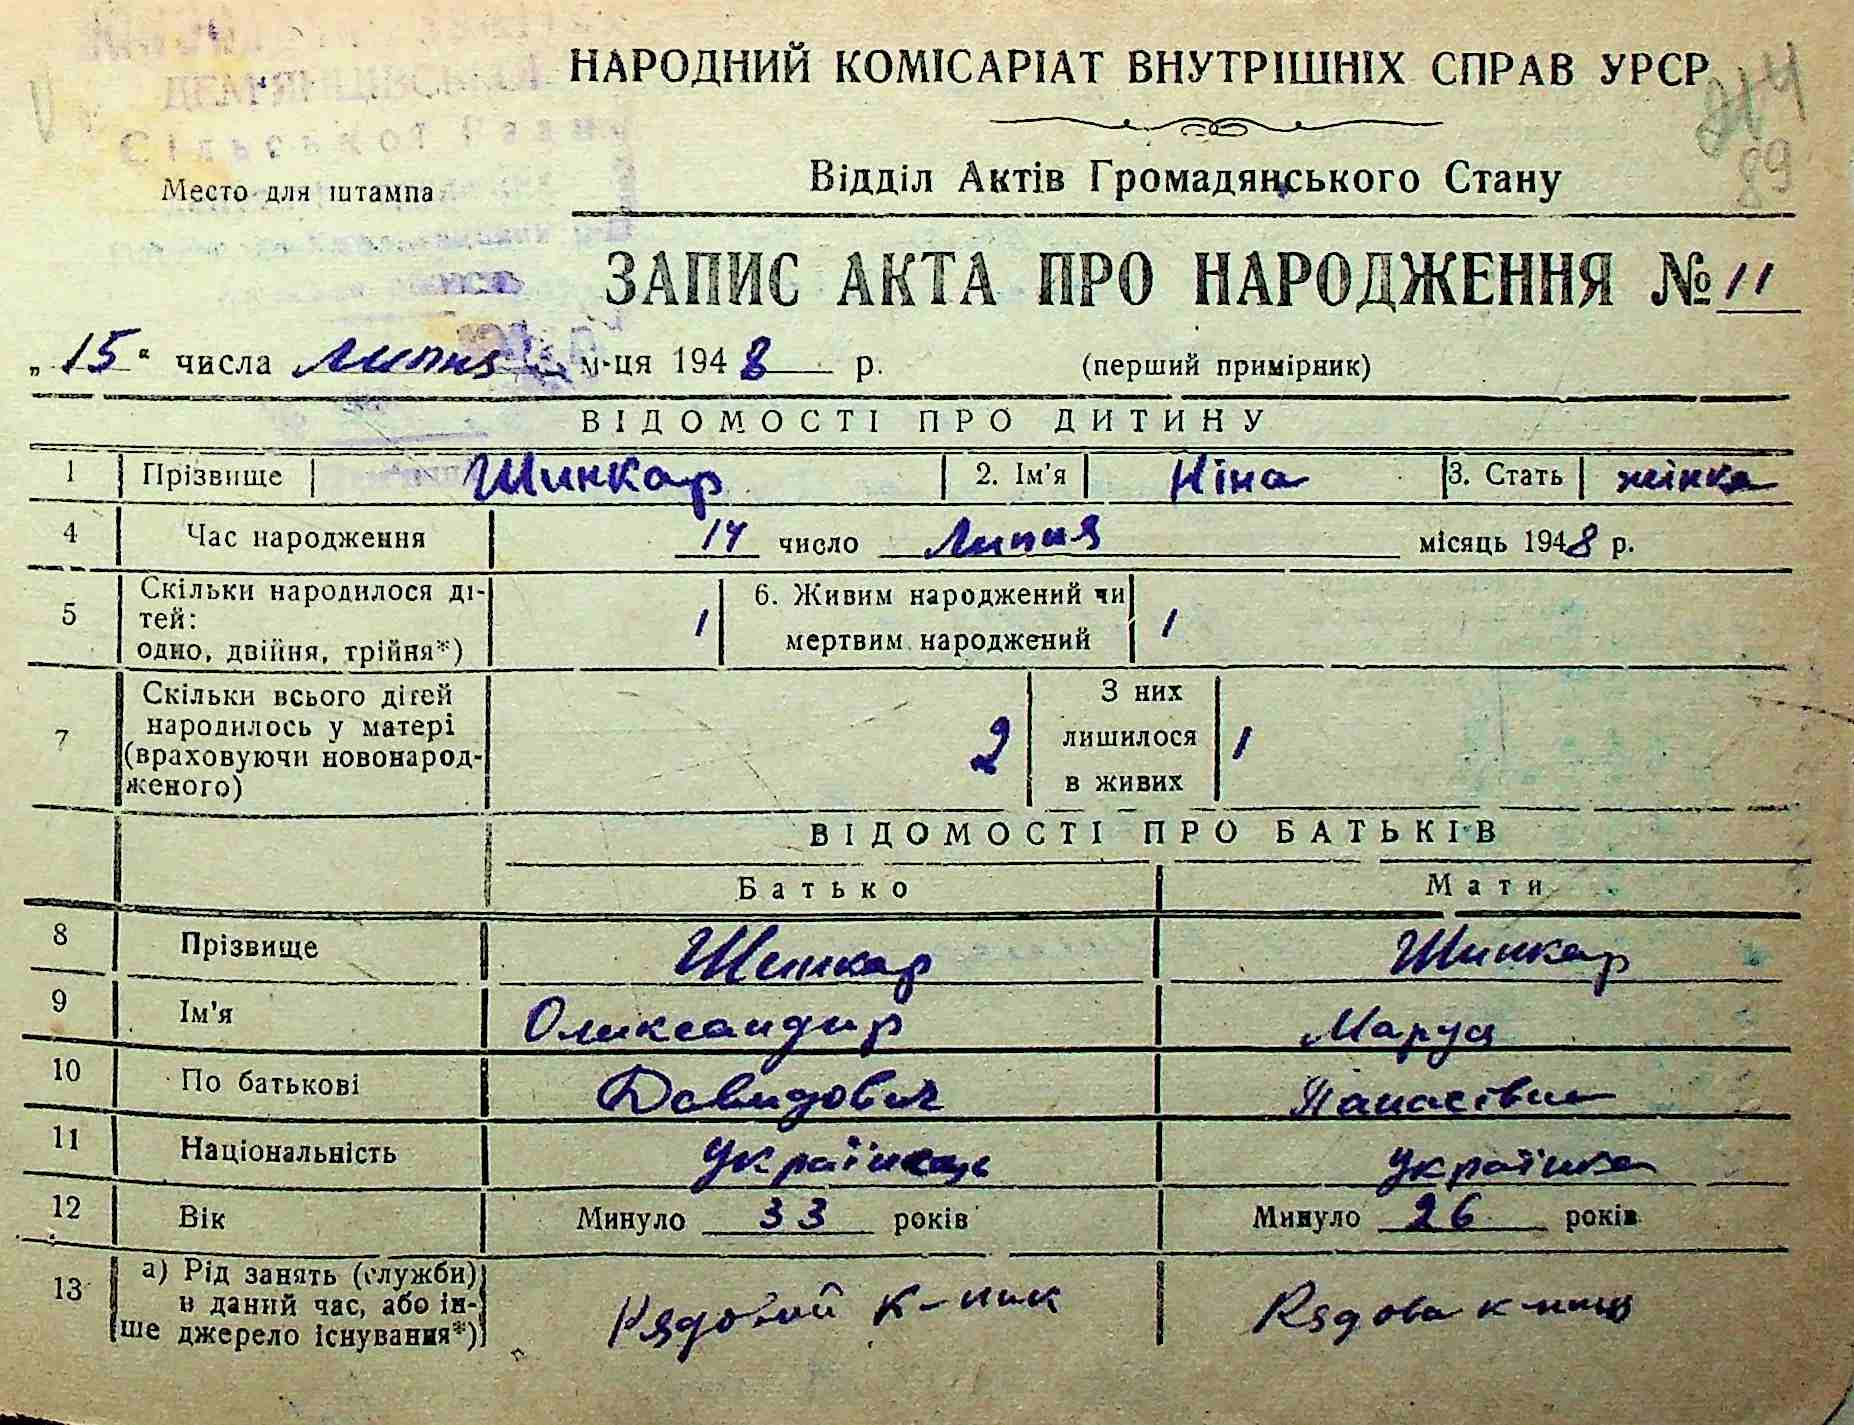 НАРОДНИЙ КОМІСАРІАТ ВНУТРІШНІХ СПРАВ УРСР
214
89
Сільської Ради
Место для штампа
Відділ Актів Громадянського Стану
ЗАПИС АКТА ПРО НАРОДЖЕННЯ № 11
„15“ числа Липня м-ця 1948 р. (перший примірник)
ВІДОМОСТІ ПРО ДИТИНУ
1 Прізвище Шинкар 2. Ім'я Ніна 3. Стать жінка
4 Час народження 14 число Липня місяць 1948 р.
5 Скільки народилося ді-
тей:
одно, двійня, трійня*) 1
6. Живим народжений чи
мертвим народжений 1
7 Скільки всього дітей
народилось у матері
(враховуючи новонарод-
женого) 2
З них
лишилося
в живих 1
ВІДОМОСТІ ПРО БАТЬКІВ
Батько Мати
8 Прізвище Шинкар Шинкар
9 Ім'я Олександир Маруся
10 По батькові Давидович Панасівна
11 Національність українець українка
12 Вік Минуло 33 років Минуло 26 років
13 а) Рід занять (служби)
в даний час, або ін-
ше джерело існування*)
Рядовий к-ник Рядова к-ниц